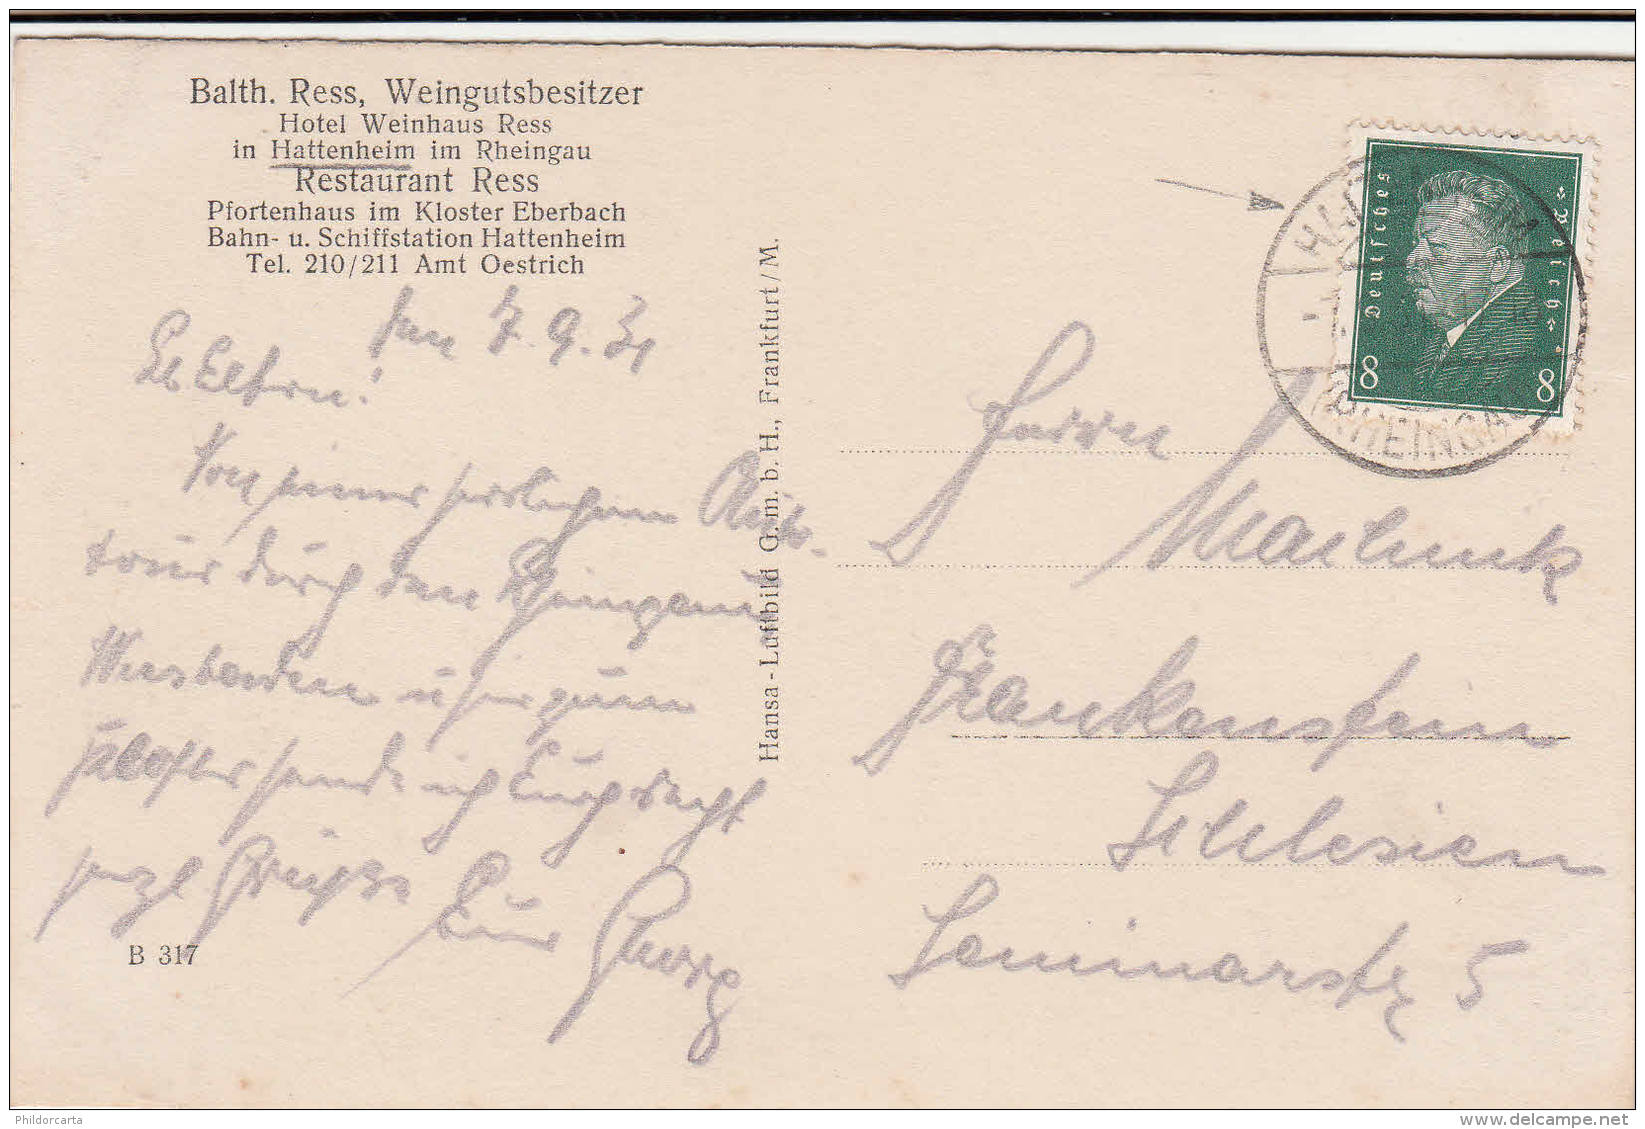 Balth. Ress, Weingutsbesitzer
Hotel Weinhaus Ress
in Hattenheim im Rheingau
Restaurant Ress
Pfortenhaus im Kloster Eberbach
Bahn- u. Schiffstation Hattenheim
Tel. 210/211 Amt Oestrich
den 7.9.31
Lb Eltern!
Von einer herrlichen
tour durch den Rheingau
Wiesbaden u hir zum
Kloster sende ich Euch recht
herzl Grüsse Eur Georg
B 317
Hansa-Luftbild G.m.b.H., Frankfurt/M.
Deutsches
«Reich»
8 8
RHEINGAU
Herrn
Frankenstein
Schlesien
Seminarstr 5
Phildorcarta
delcampe.net